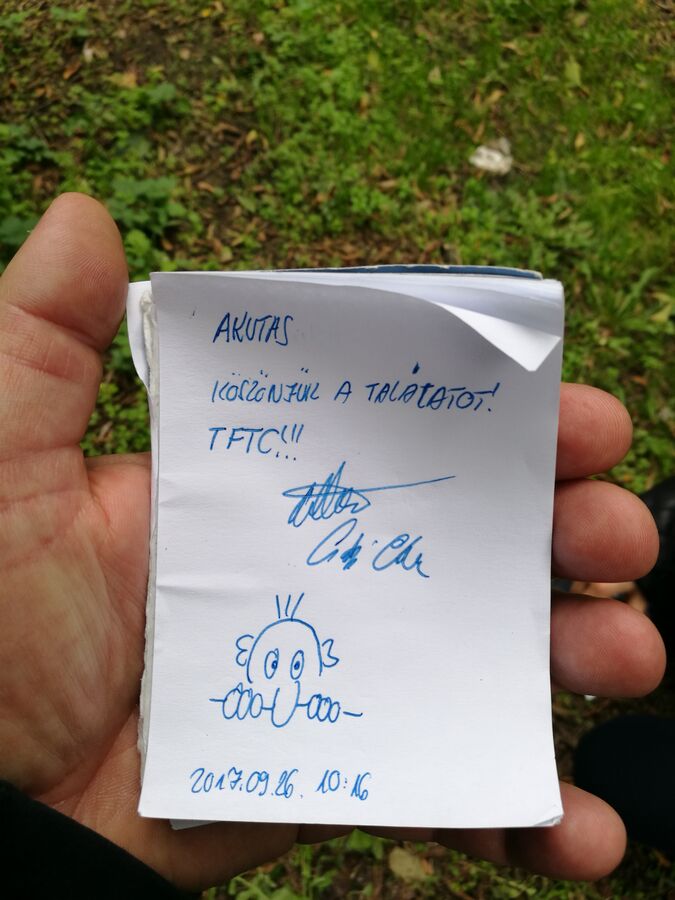 AKUTAS
KÖSZÖNJÜK A TALÁLATOT!
TFTC!!!
2017.09.26. 10:16